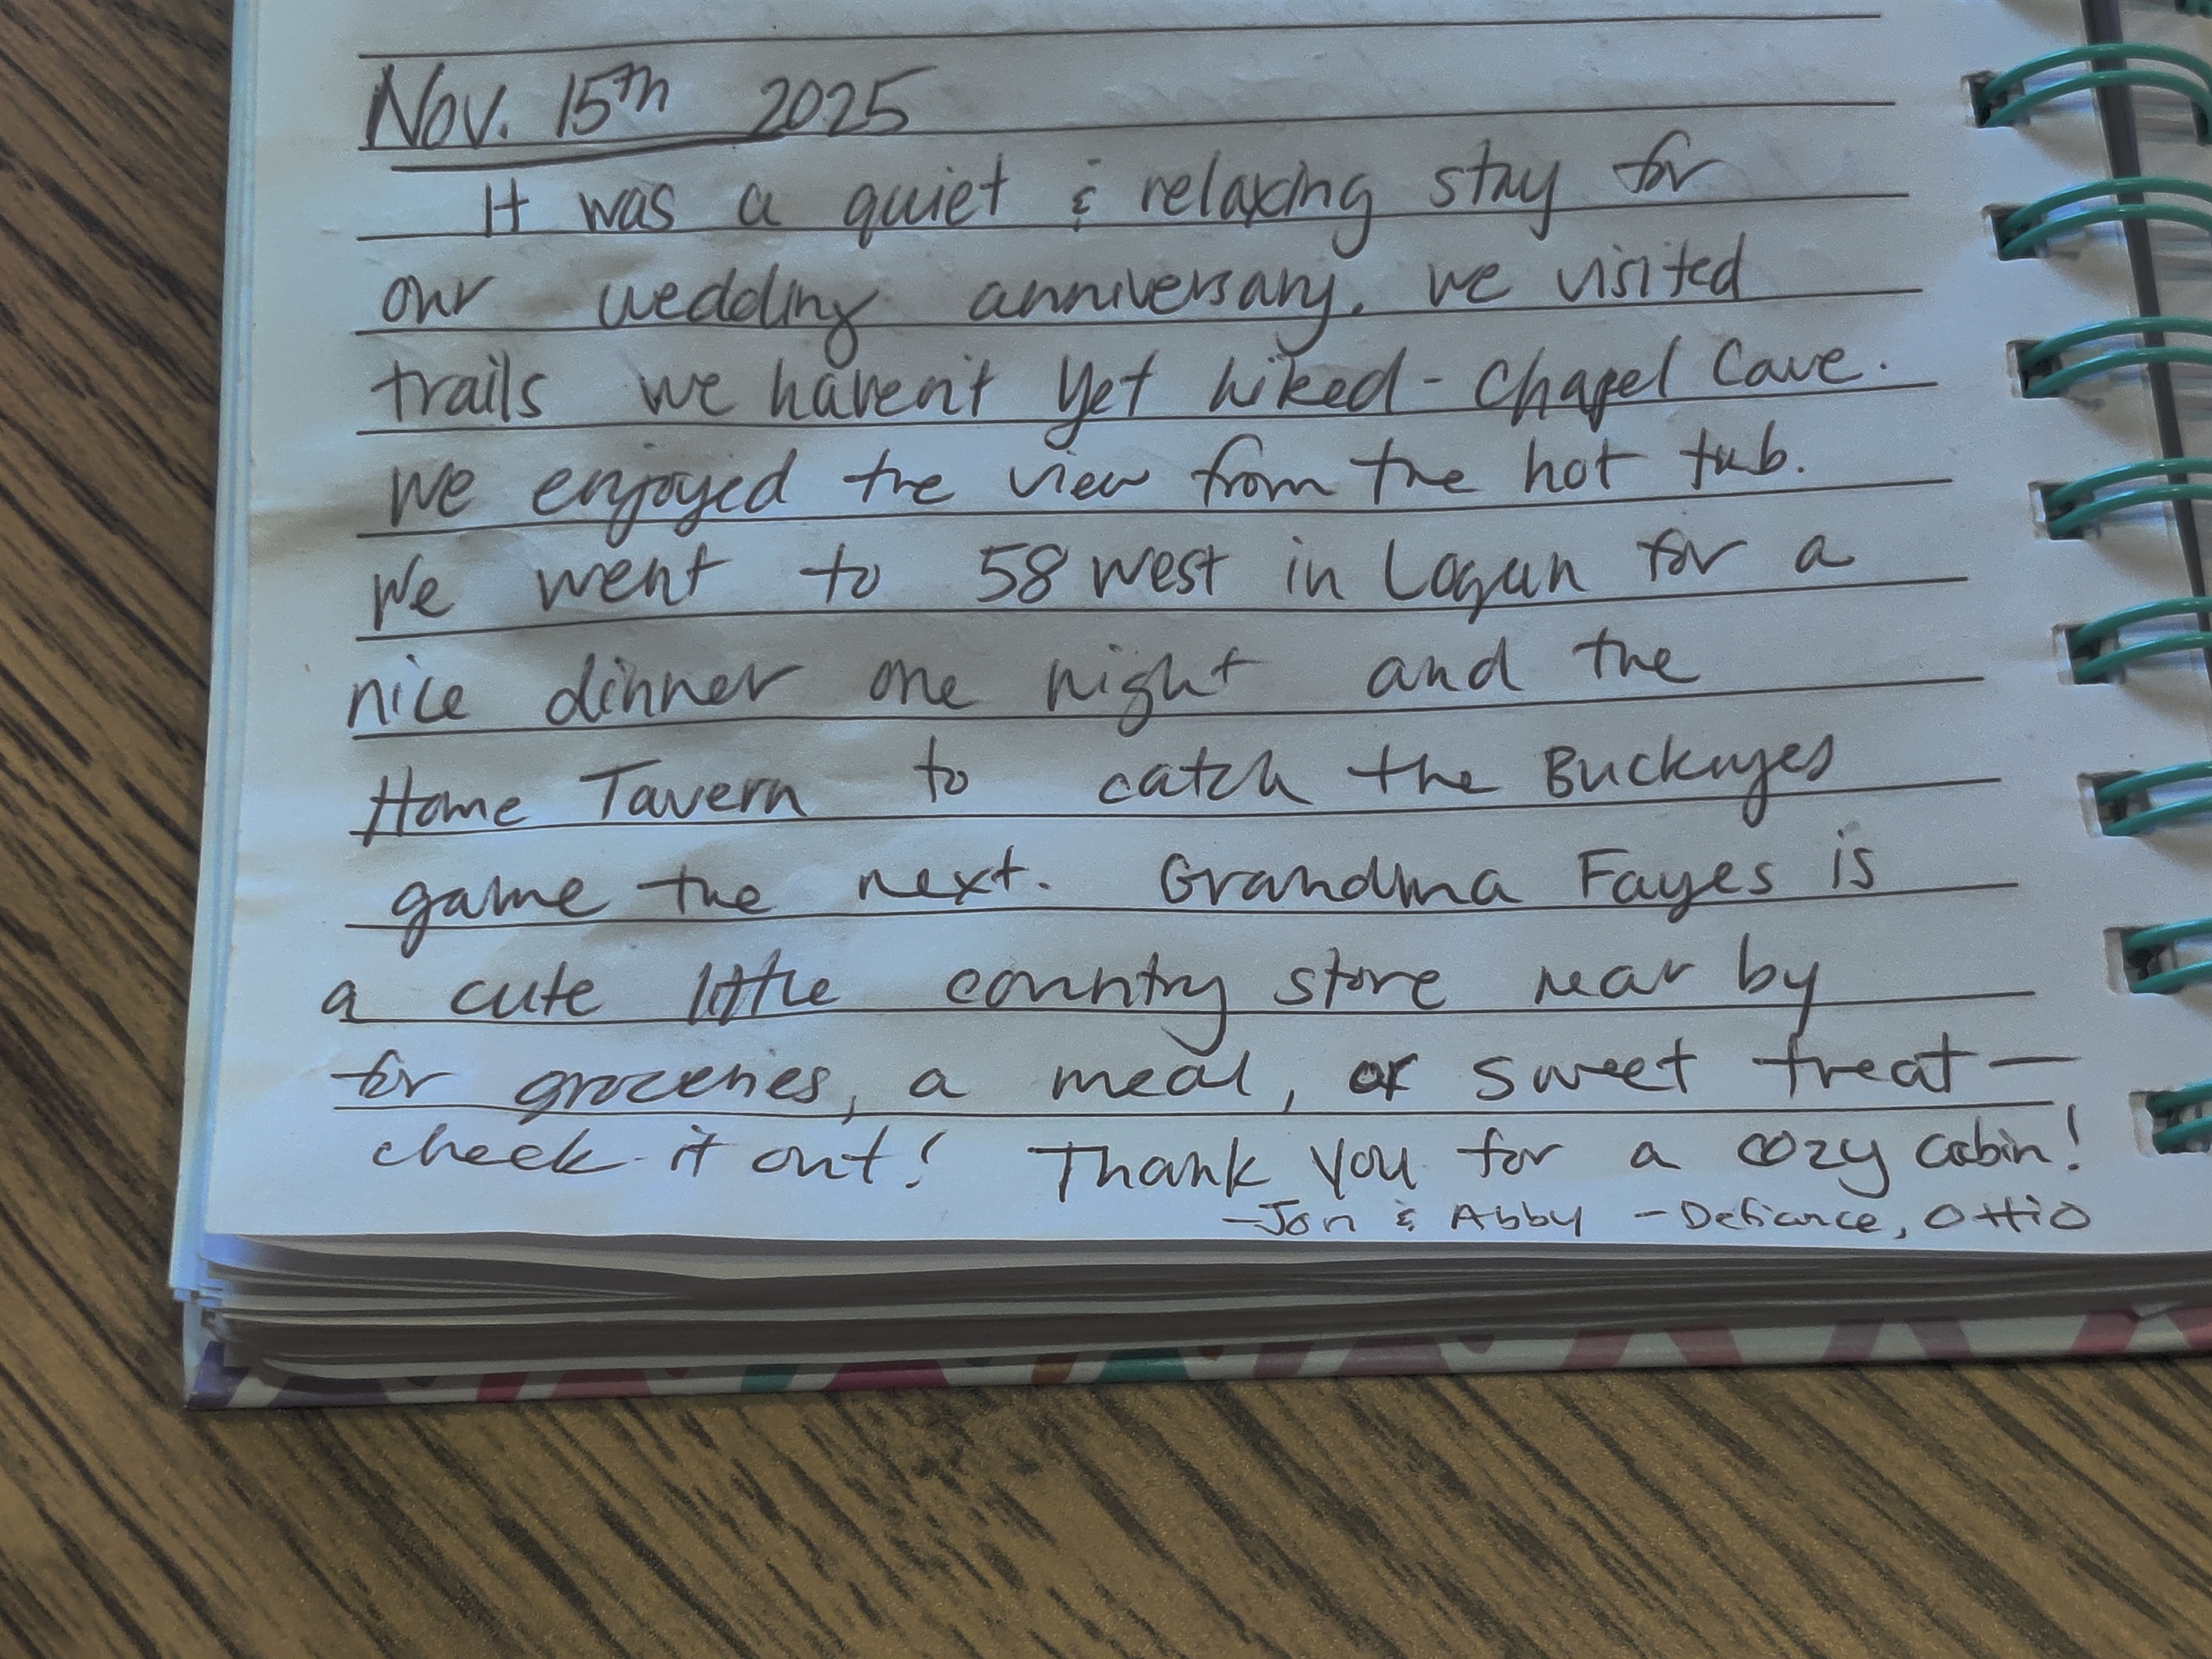 Nov. 15th 2025
It was a quiet & relaxing stay for
our wedding anniversary. we visited
trails we haven't yet hiked - Chapel Cave.
We enjoyed the view from the hot tub.
We went to 58 West in Logan for a
nice dinner one night and the
Home Tavern to catch the Buckeyes
game the next. Grandma Fayes is
a cute little country store near by
for groceries, a meal, or sweet treat—
check it out! Thank you for a cozy cabin!
-Jon & Abby - Defiance, OHIO